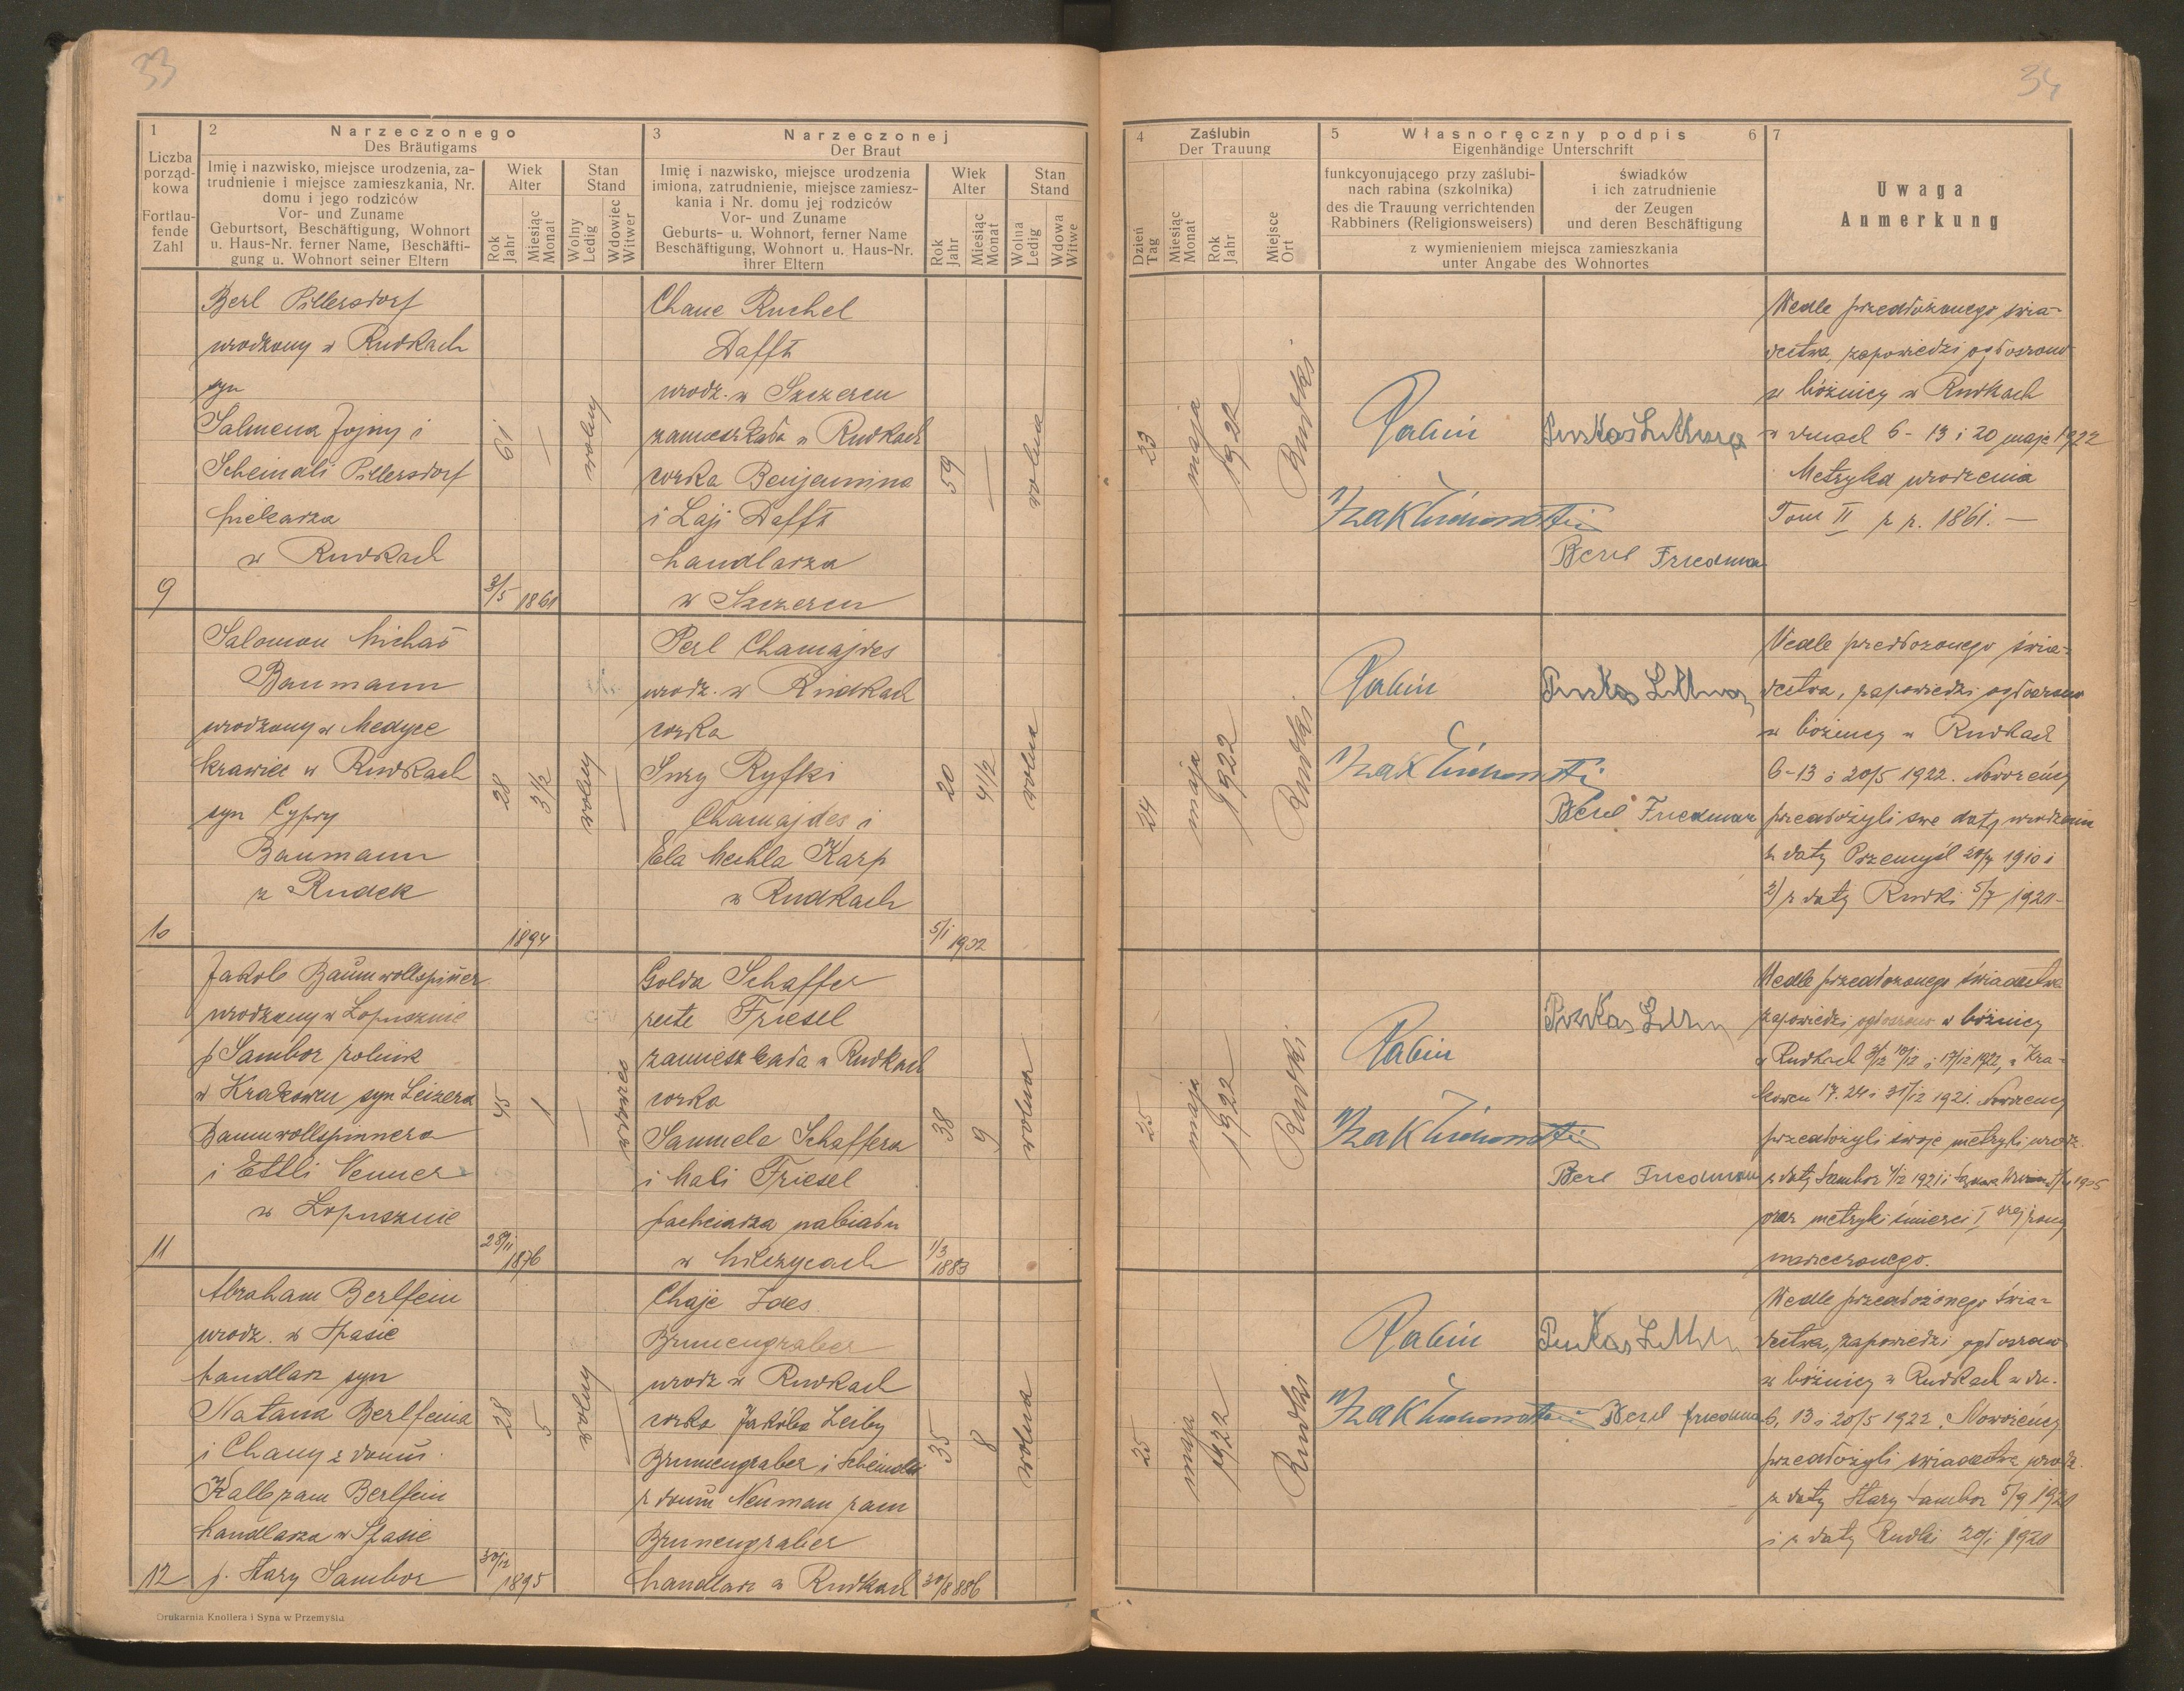 33
1
Liczba
porząd-
kowa
Fortlau-
fende
Zahl
2
Narzeczonego
Des Bräutigams
Imię i nazwisko, miejsce urodzenia, za-
trudnienie i miejsce zamieszkania, Nr.
domu i jego rodziców
Vor- und Zuname
Geburtsort, Beschäftigung, Wohnort
u. Haus-Nr. ferner Name, Beschäfti-
gung u. Wohnort seiner Eltern
Wiek
Alter
Rok
Jahr
Miesiąc
Monat
Stan
Stand
Wolny
Ledig
Wdowiec
Witwer
3
Narzeczonej
Der Braut
Imię i nazwisko, miejsce urodzenia
imiona, zatrudnienie, miejsce zamiesz-
kania i Nr. domu jej rodziców
Vor- und Zuname
Geburts- u. Wohnort, ferner Name
Beschäftigung, Wohnort u. Haus-Nr.
ihrer Eltern
Wiek
Alter
Rok
Jahr
Miesiąc
Monat
Stan
Stand
Wolna
Ledig
Wdowa
Witwe
9
Berl Pillersdorf
urodzony w Rudkach
syn
Salmena Jojny i
Scheindli Pillersdorf
piekarza
w Rudkach
61
—
wolny
3/5 1861
Chane Ruchel
Dafft
urodz. w Szczercu
zamieszkała w Rudkach
córka Benjamina
i Laji Dafft
handlarza
w Szczercu
59
—
wolna
10
Salomon Michał
Baumann
urodzony w Medyce
krawiec w Rudkach
syn Cypry
Baumann
z Rudek
28
3 1/2
wolny
—
1894
Perl Chamajdes
urodz. w Rudkach
córka
Sury Ryfki
Chamajdes i
Ela Mechla Karp
w Rudkach
20
4 1/2
wolna
5/1 1902
11
Jakob Baumwollspinner
urodzony w Łopusznie
p Sambor rolnik
w Krakowcu syn Leizera
Baumwollspinnera
i Ettli Venner
w Łopusznie
45
1
—
wdowiec
28/11 1876
Golda Schaffer
recte Friesel
zamieszkała w Rudkach
córka
Samuela Schaffera
i Mali Friesel
pachciarza nabiału
w Milczycach
38
9
wolna
1/3 1883
12
Abraham Berlfein
urodz. w Spasie
handlarz syn
Natana Berlfeina
i Chany z domu
Kalb zam Berlfein
handlarza w Spasie
p. Stary Sambor
28
5
wolny
—
30/12 1895
Chaje Ides
Brunengraber
urodz w Rudkach
córka Jakóba Leiby
Brunnengraber i Scheindli
z domu Neuman zam
Brunengraber
handlarz w Rudkach
35
8
wolna
30/8 886
Drukarnia Knollera i Syna w Przemyślu
34
4
Zaślubin
Der Trauung
Dzień
Tag
Miesiąc
Monat
Rok
Jahr
Miejsce
Ort
5
Własnoręczny podpis
Eigenhändige Unterschrift
6
funkcyonującego przy zaślubi-
nach rabina (szkolnika)
des die Trauung verrichtenden
Rabbiners (Religionsweisers)
świadków
i ich zatrudnienie
der Zeugen
und deren Beschäftigung
z wymienieniem miejsca zamieszkania
unter Angabe des Wohnortes
7
Uwaga
Anmerkung
23
maja
1922
Rudki
Rabin
Berl Friedman
Wedle przedłożonego świa-
dectwa, zapowiedzi ogłoszono
w bóżnicy w Rudkach
w dniach 6 - 13 i 20 maja 1922
Metryka urodzenia
Tom II z r. 1861. —
24
maja
1922
Rudki
Rabin
Berl Friedman
Wedle przedłożonego świa-
dectwa, zapowiedzi ogłoszono
w bóżnicy w Rudkach
6-13 i 20/5 1922. Nowożeńcy
przedłożyli swe daty urodzenia
z daty Przemyśl 1910 i
2) z daty Rudki 5/7 1921
25
maja
1922
Rudki
Rabin
Berl Friedman
Wedle przedłożonego świadectwa
zapowiedzi ogłoszono w bóżnicy
w Rudkach 3/12 10/12 i 17/12 1922, w Kra-
kowcu 17. 24 i 31/12 1921. Nowożeńcy
przedłożyli swoje metryki urodz.
z daty Sambor 4/12 1921 i 1905
oraz metryki śmierci I szej żony
narzeczonego.
25
maja
1922
Rudki
Rabin
Berl Friedman
Wedle przedłożonego świa-
dectwa, zapowiedzi ogłoszono
w bóżnicy w Rudkach w dn.
6, 13 i 20/5 1922. Nowożeńcy
przedłożyli świadectwa urodz.
z daty Stary Sambor 5/9 1921
i z daty Rudki 20/1 1920